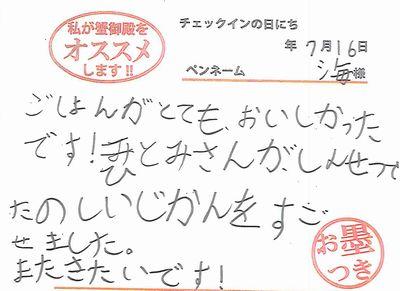 私が蟹御殿を
オススメ
します!!
チェックインの日にち
年 7月16日
ペンネーム 海様
ごはんがとても、おいしかった
です!ひとみさんが、しんせつで
たのしいじかんをすご
せました。
またきたいです!
お墨
つき